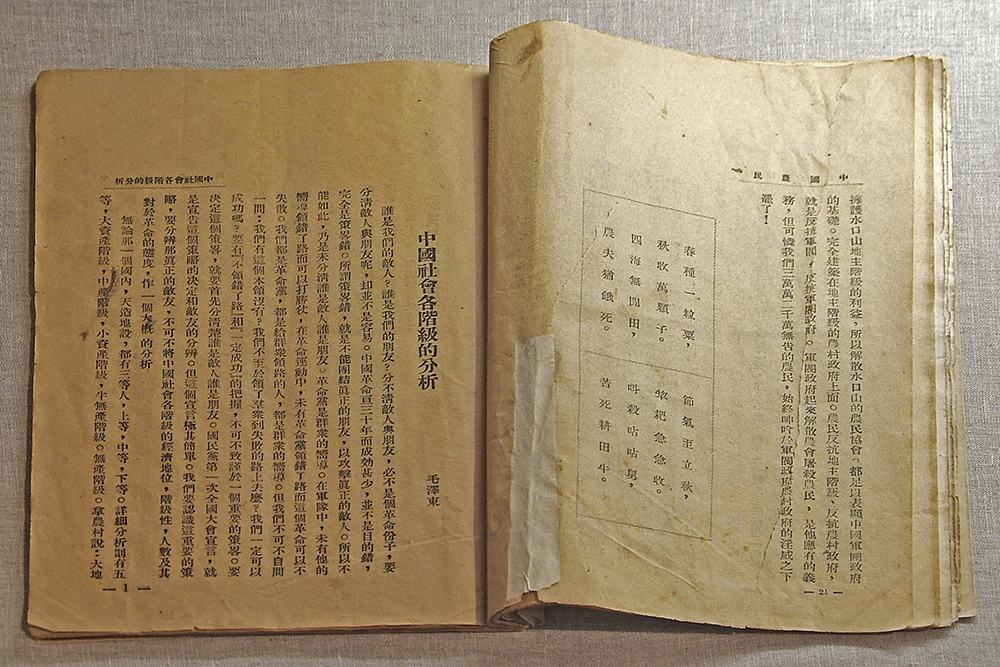 中國農民
擁護水口山地主階級的利益,所以解散水口山的農民協會。都足以表顯中國軍閥政府
的基礎。完全建築在地主階級的農村政府上面。農民反抗地主階級、反抗農村政府,
就是反抗軍閥、反抗軍閥政府。軍閥政府起來解散農會屠殺農民,是他應有的義
務,但可憐我們三萬萬二千萬無告的農民,始終呻吟於軍閥政府農村政府的淫威之下
罷了!
春種一粒粟,
秋收萬顆子。
四海無閒田,
農夫猶餓死。
節氣至立秋,
耙急急收。
叫殺咕咕舅,
苦死耕田牛。
— 21 —
中國社會各階級的分析
中國社會各階級的分析
毛澤東
誰是我們的敵人?誰是我們的朋友?分不清敵人與朋友,必不是個革命份子,要
分清敵人與朋友呢,却並不是容易。中國革命亘三十年而成効甚少,並不是目的錯,
完全是策畧錯。所謂策畧錯,就是不能團結眞正的朋友,以攻擊眞正的敵人。所以不
能如此,乃是未分清誰是敵人誰是朋友。革命黨是群衆的嚮導。在軍隊中,未有他的
嚮導領錯了路而可以打勝仗,在革命運動中,未有革命黨領錯了路而這個革命可以不
失敗。我們都是革命黨,都是給群衆領路的人,都是群衆的嚮導。但我們不可不自問
一問:我們有這個本領沒有?我們不至於領了羣衆到失敗的路上去麼?我們一定可以
成功嗎?要有「不領錯了路」和「一定成功」的把握,不可不致謹於一個重要的策畧。要
決定這個策畧,就要首先分清楚誰是敵人誰是朋友。國民黨第一次全國大會宣言,就
是宣告這個策略的決定和敵友的分辨。但這個宣言極其簡單。我們要認識這重要的策
略,要分辨那眞正的敵友,不可不將中國社會各階級的經濟地位,階級性,人數及其
對於革命的態度,作一個大概的分析
無論那一個國內,天造地設,都有三等人,上等,中等,下等。詳細分析則有五
等,大資產階級,中產階級,小資產階級,半無產階級。無產階級。拿農村說:大地
— 1 —